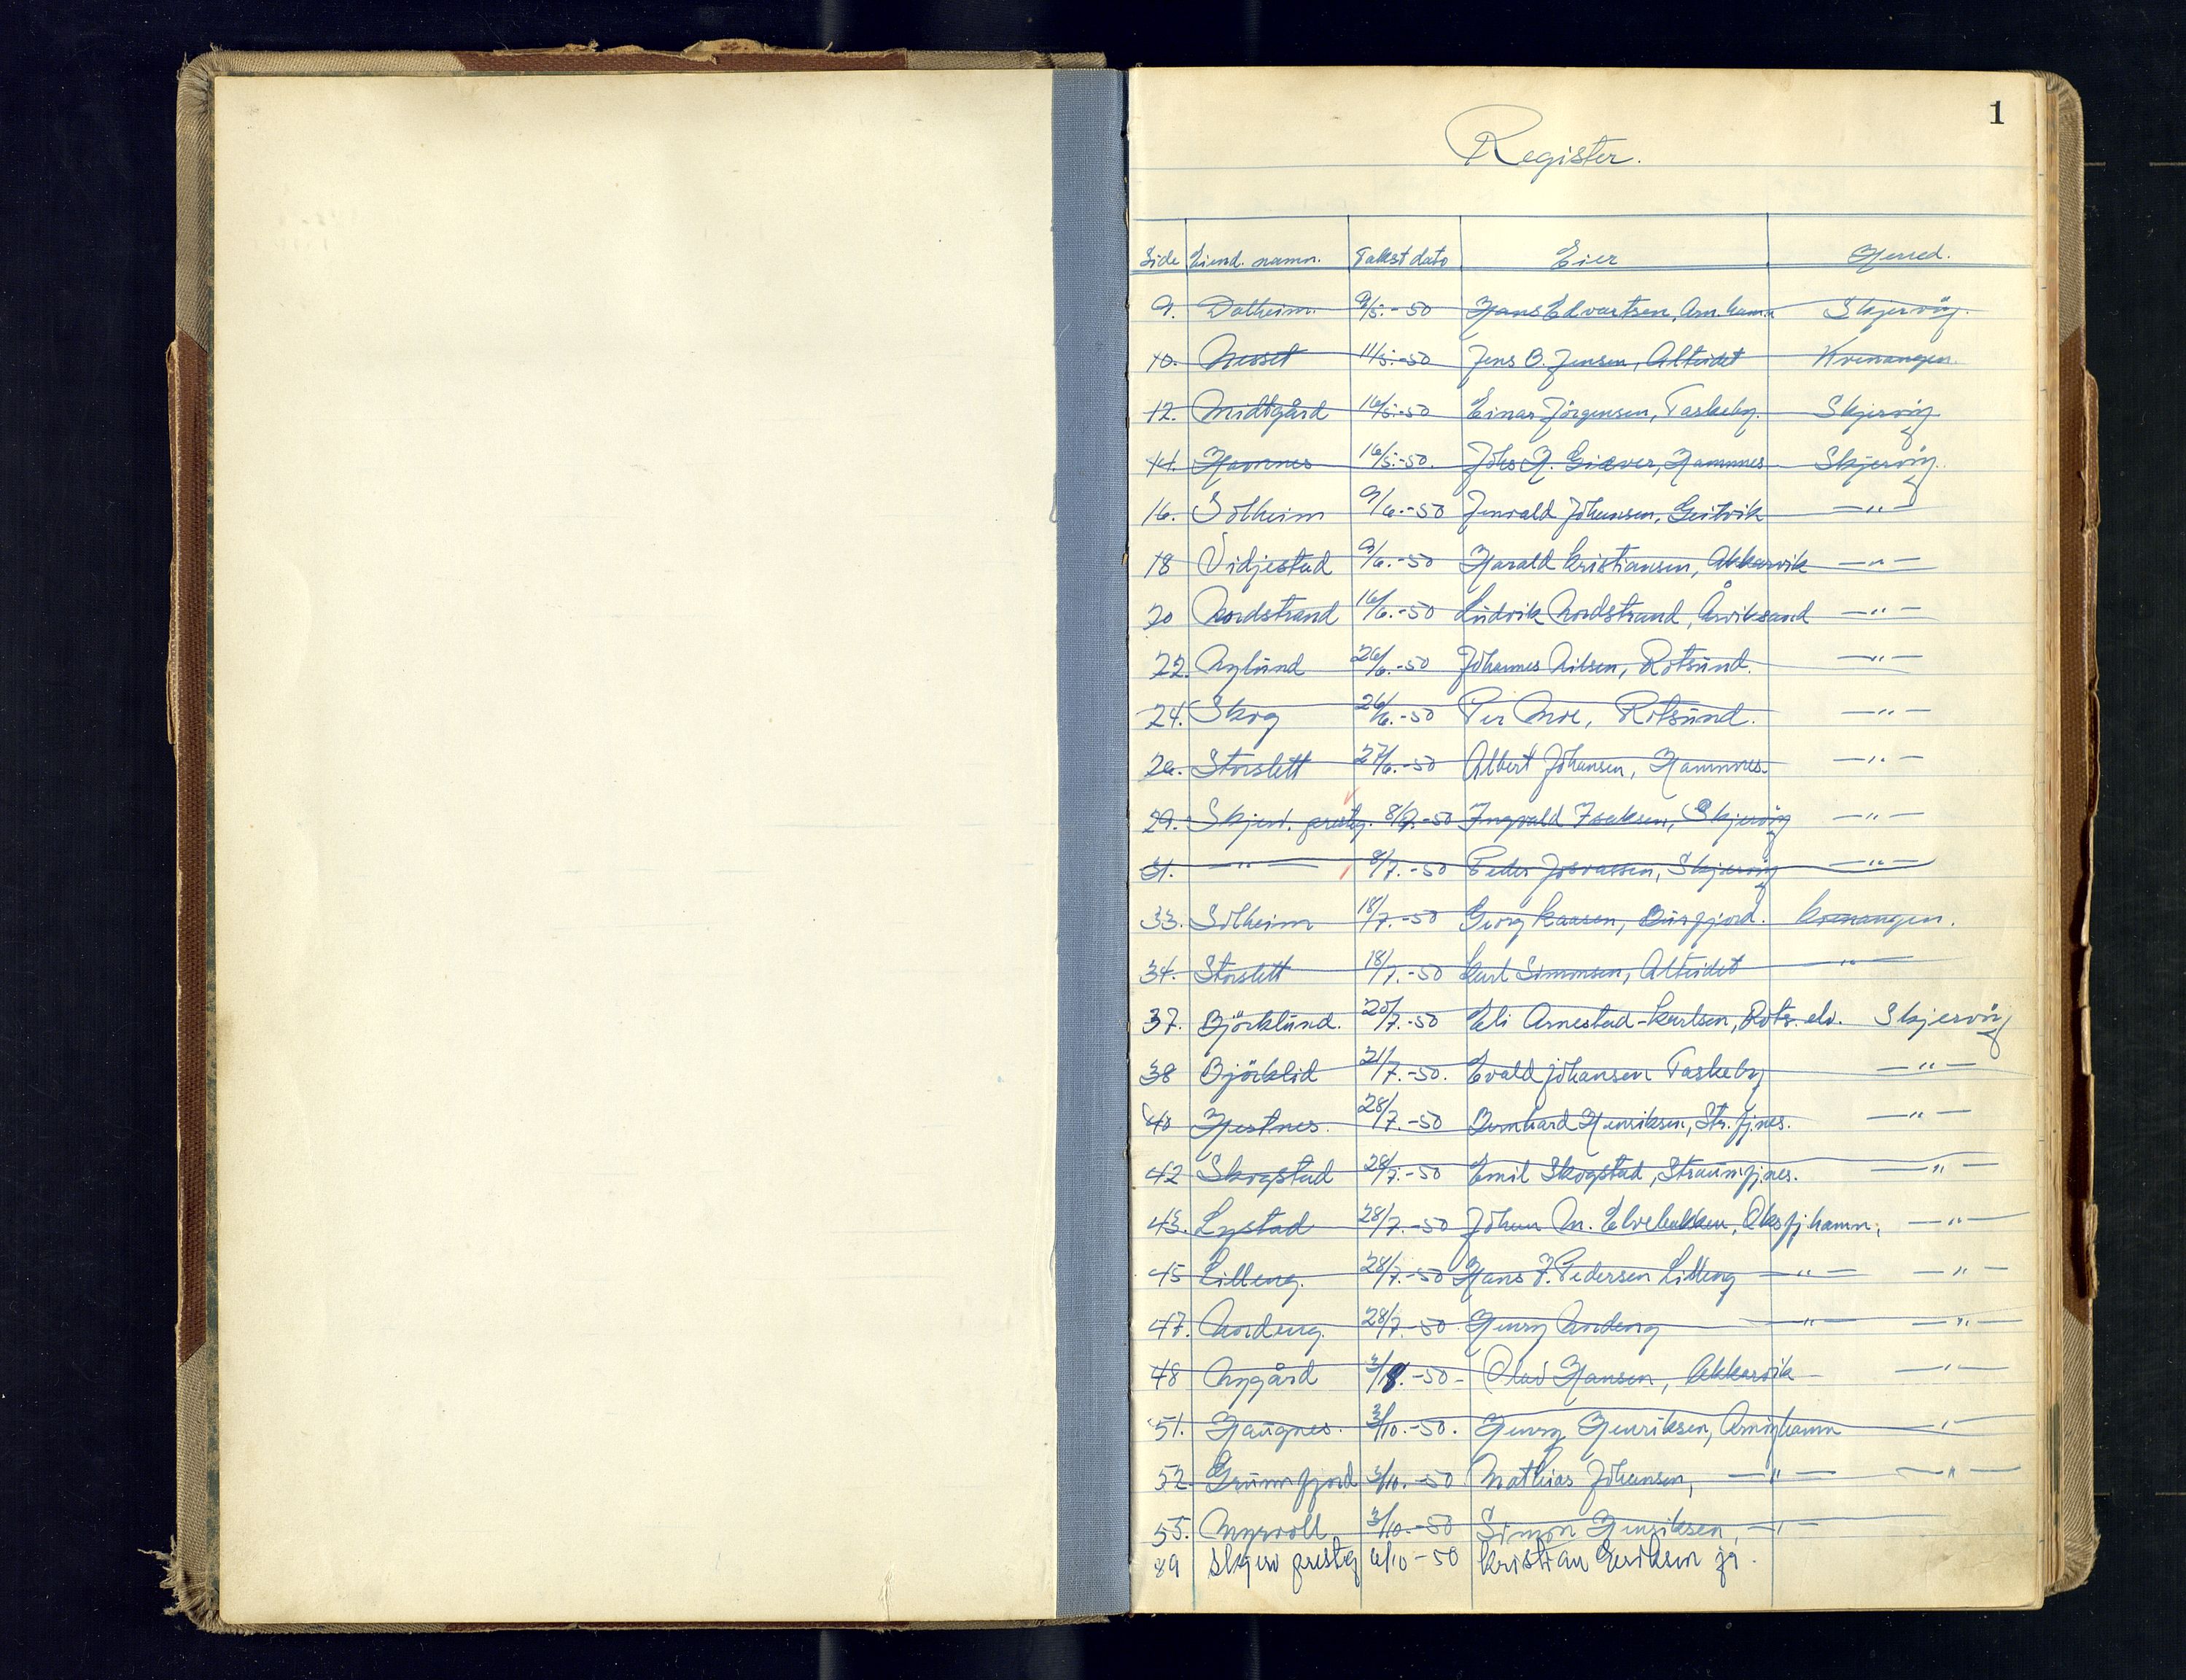 1
Register.
Side Eiend. namn. Takst dato Eier Herred.
9. Dalheim. 9/5.-50 Hans Edvartsen, Arn.hamn Skjervöy.
10. Nesset 11/5.-50 Jens B. Jensen, Alteidet Kvenangen.
12. Midtgård 16/5.-50 Einar Jörgensen, Taskeby. Skjervöy
14. Havnnes 16/5.-50. Johs H. Giæver, Hamnnes Skjervöy.
16. Solheim 9/6.-50 Jenvald Johansen, Geitvik —"—
18 Vidjestad 9/6.-50 Harald Kristiansen, Akkarvik —"—
20 Nordstrand 16/6.-50 Ludvik Nordstrand, Årviksand —"—
22. Nylund 26/6.-50 Johannes Nilsen, Rotsund. —"—
24. Skog 26/6.-50 Per Moe, Rotsund. —"—
26. Storslett 27/6.-50 Albert Johansen, Hamnnes. —"—
29. Skjerv. prestg. 8/7.-50 Ingvald Isaksen, Skjervöy —"—
31. —"— 8/7.-50 Peder Josvassen, Skjervöy —"—
33. Solheim 18/7.-50 Georg Kaasen, Burfjord. Kvenangen.
34. Storslett 18/7.-50 Karl Simonsen, Alteidet "
37. Björklund. 20/7.-50 Eli Arnestad-Karlsen, Rots.elv. Skjervöy
38 Björklid 21/7.-50. Evald Johansen Taskeby —"—
40 Hestnes. 28/7.-50 Bernhard Henriksen, Str.fj.nes. —"—
42 Skogstad 28/7.-50 Emil Skogstad, Straumfj.nes. —"—
43. Lystad 28/7.-50 Johan M. Elvebakken, Oksfj.hamn, —"—
45 Lilleng. 28/7.-50 Hans J. Pedersen Lilleng —"— —"—
47. Nordeng. 28/7.-50. Henry Nordeng —"— —"—
48 Nygård 3/8.-50- Olav Hansen, Akkarvik —"—
51. Haugnes. 3/10.-50. Henry Henriksen, Arnöyhamn —"—
52. Grunnfjord 3/10.-50 Mathias Johansen, —"— —"—
55. Myrvoll 3/10.-50 Simon Henriksen, —"—
89 Skjerv prestg 6/10-50 Kristian Eeriksen jr.